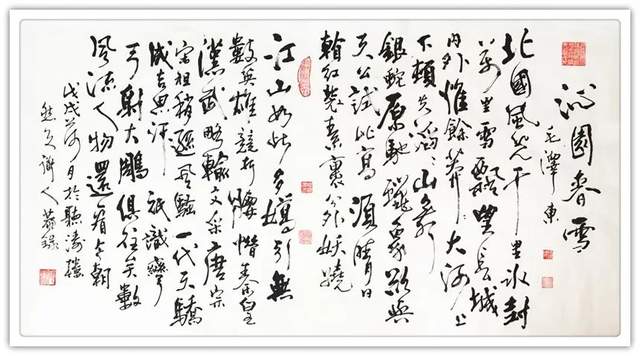 沁園春雪
毛澤東
北國風光千里冰封
萬里雪飄望長城
内外惟餘莽莽大河上
下頓失滔滔山舞
銀蛇原馳蠟象欲與
天公試比高須晴日
看紅裝素裹分外妖嬈
江山如此多嬌引無
數英雄競折腰惜秦皇
漢武略輸文采唐宗
宋祖稍遜風騷一代天驕
成吉思汗祇識彎
弓射大鵰俱往矣數
風流人物還看今朝
戊戌荷月於聽濤樓
人恭錄